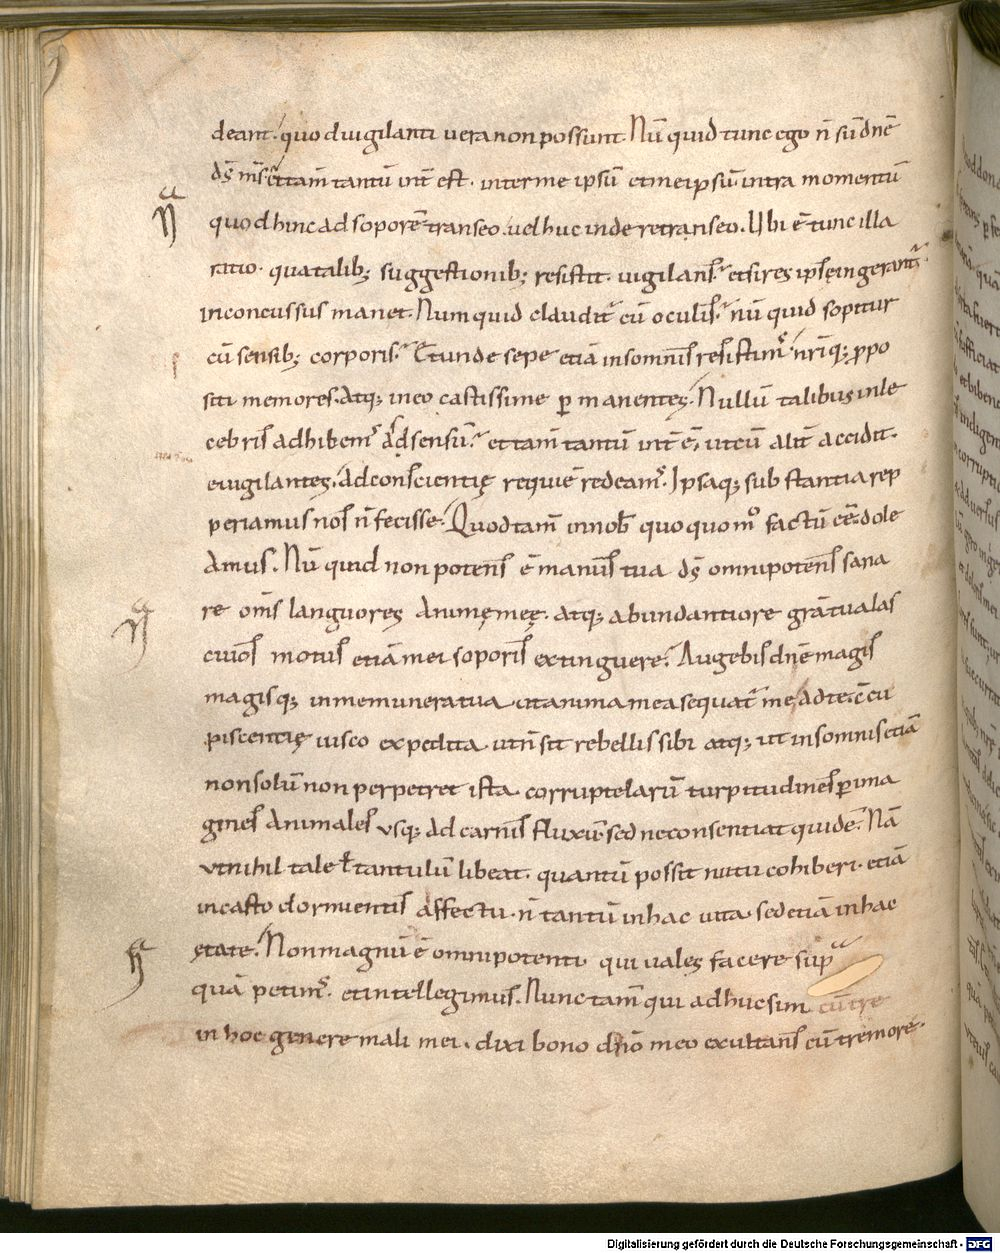 deant. quod uigilanti uera non possunt. Nũ quid tunc ego ñ sũ dñe
ds̃ ms̃. Et tam̃ tantũ int̃ est. inter me ipsũ et me ipsũ. intra momentũ
quo d hinc ad soporẽ transeo. uel huc inde retranseo. Ubi ẽ tunc illa
ratio. qua talib; suggestionib; resistit. uigilans. et si res ipsę ingerant̃.
inconcussus manet. Numquid claudit̃ cũ oculis. nũ quid sopitur
cũ sensib; corporis. Et unde sepe etiã in somnis resistim̃. nr̃iq; ppo
siti memores. Atq; in eo castissime p manentes. Nullũ talibus inle
cebris adhibem̃ adsensũ. et tam̃ tantũ int̃ ẽ, ut cũ alit̃ accidit.
euigilantes. Ad conscientię requiẽ redeam̃. Ipsaq; substantia rep
periamus nos ñ fecisse. Quod tam̃ in nob̃ quo quo mõ factũ eẽ. dole
Amus. Nũ quid non potens ẽ manus tua ds̃ omnipotens sana
re om̃s languores animę meę. atq; abundantiore grã tua las
ciuos motus etiã mei soporis extinguere. Augebis dñe magis
magisq; in me munera tua. ut anima mea sequat̃ me ad te. c̃cu
piscentię uisco expedita. ut ñ sit rebellis sibi atq; ut in somnis etiã
non solũ non perpetret ista corruptelarũ turpitudines. p ima
gines animales usq; ad carnis fluxũ. sed ne consentiat quidẽ. Nã
ut nihil tale ł tantulũ libeat. quantũ possit nutu cohiberi. etiã
in casto dormientis affectu. ñ tantũ in hac uita. sed etiã in hac
ętate. Non magnũ ẽ omnipotenti. qui uales facere sup̃
quã petim̃. et intellegimus. Nunc tam̃ qui adhuc sim cũ tre
in hoc genere mali mei. dixi bono dño meo exultans cũ tremore.
Digitalisierung gefördert durch die Deutsche Forschungsgemeinschaft - DFG